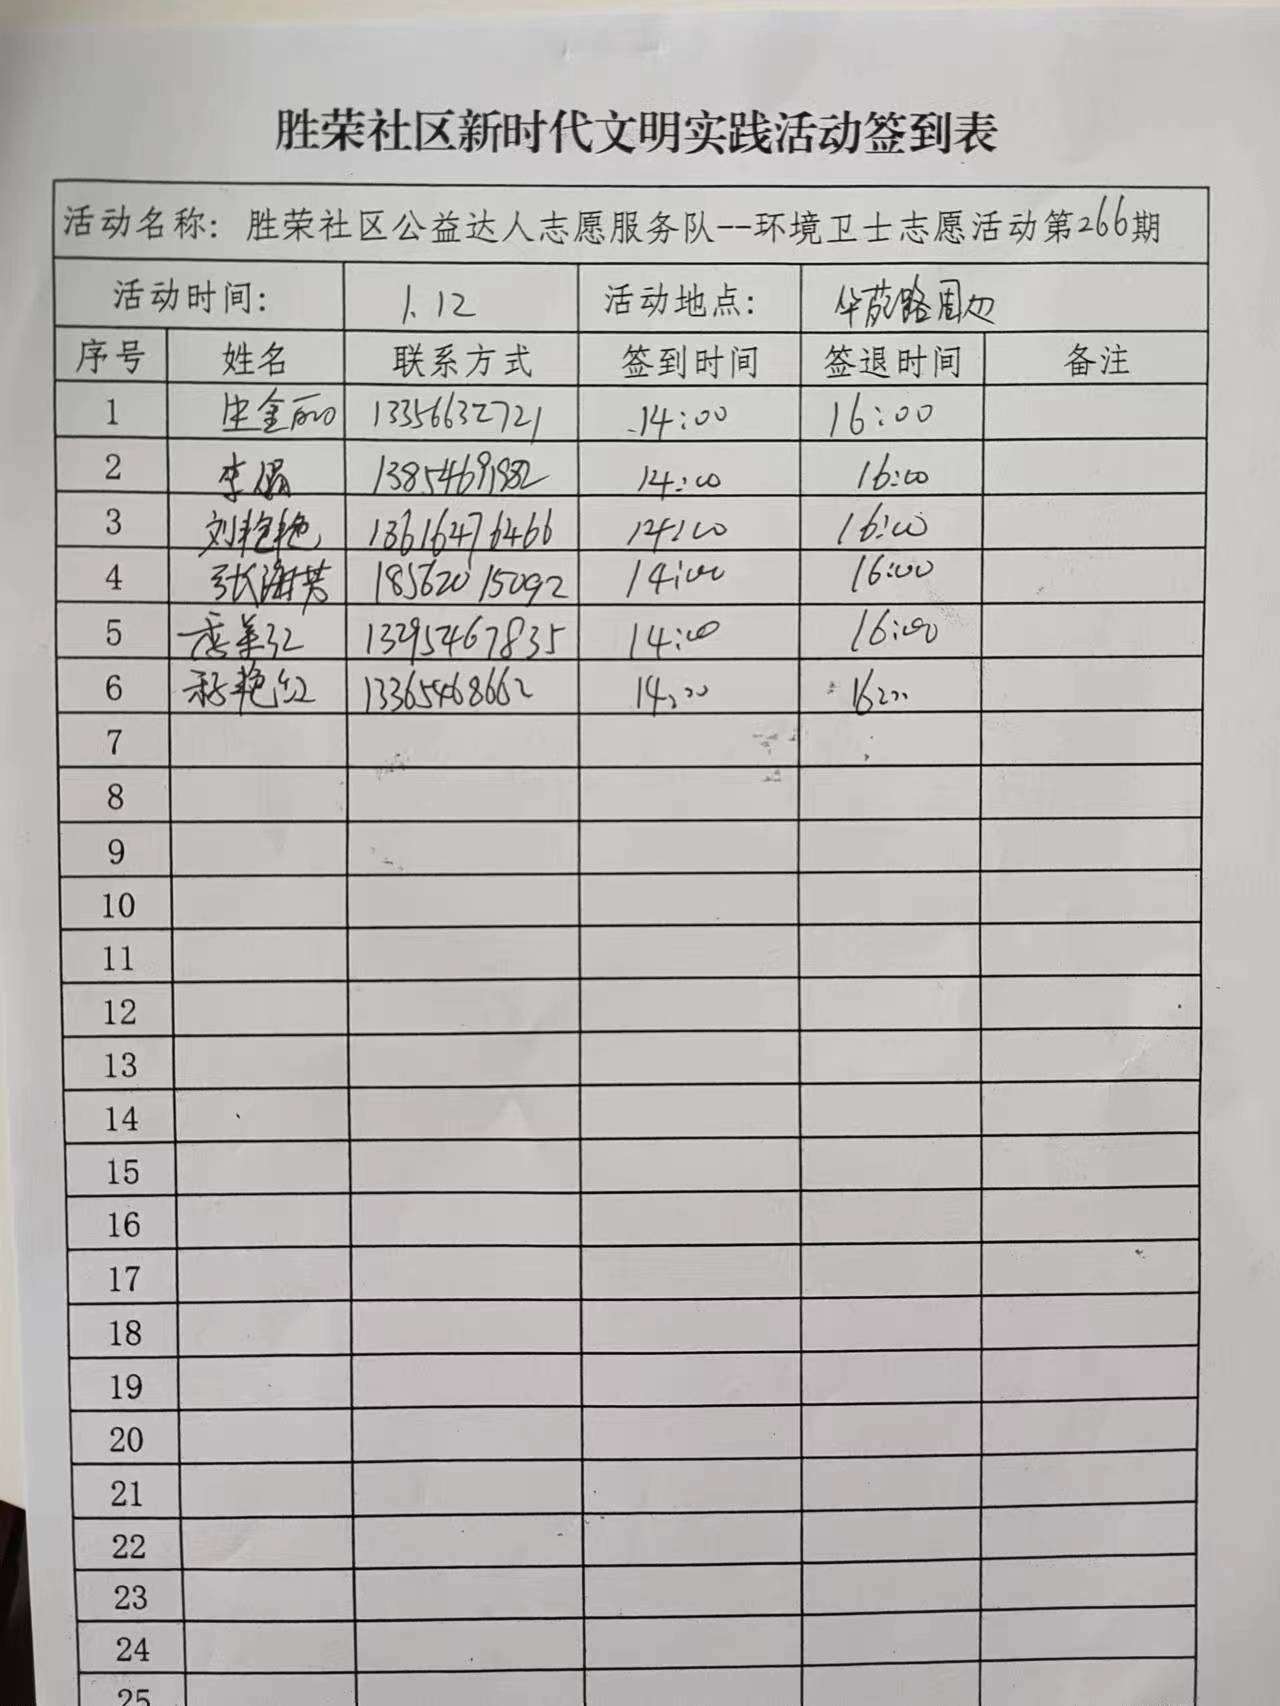 胜荣社区新时代文明实践活动签到表
活动名称：胜荣社区公益达人志愿服务队--环境卫士志愿活动第266期
活动时间： 1.12 活动地点： 华苑路周边
序号 姓名 联系方式 签到时间 签退时间 备注
1 金丽 13356632721 14:00 16:00
2 李娟 13854691982 14:00 16:00
3 刘艳艳 13616476466 14:00 16:00
4 张海芳 18562015092 14:00 16:00
5 13295467835 14:00 16:00
6 艳红 13365468662 14:00 16:00
7
8
9
10
11
12
13
14
15
16
17
18
19
20
21
22
23
24
25